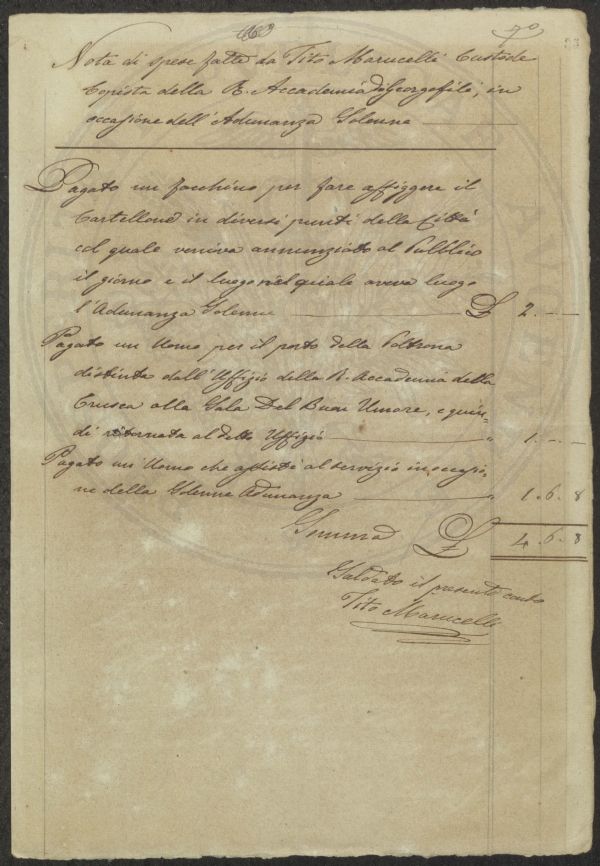 7º
Nota di spese fatte da Tito Marucelli Custode
Copista della R. Accademia de Georgofili, in
occasione dell'Adunanza Solenne
Pagato un facchino per fare affiggere il
Cartellone in diversi punti della Città
col quale veniva annunziato al Pubblico
il giorno e il luogo nel quale aveva luogo
l'Adunanza Solenne £ 2. - -
Pagato un Uomo per il porto della Poltrona
distinta dall'Uffizio della R. Accademia della
Crusca alla Sala Del Buon Umore, e quin-
di ritornata al detto Uffizio " 1. - -
Pagato un'Uomo che assisté al servizio in occasio-
ne della Solenne Adunanza " 1. 6. 8
Somma £ 4. 6. 8
Saldato il presente conto
Tito Marucelli